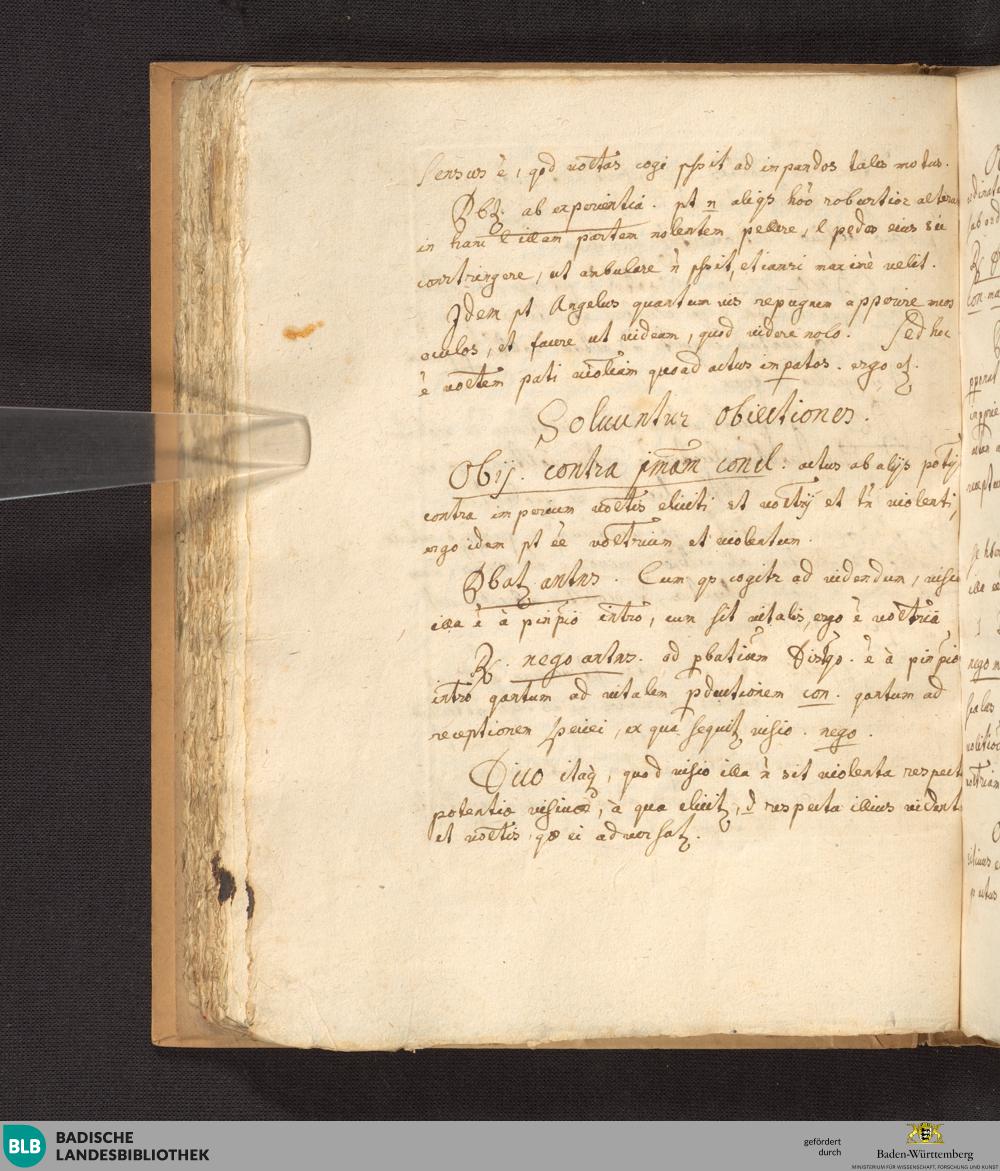 Sensus ē, qđ volt̄as cogi pssit ad inpandos tales motus.
Pbz. ab experientia. pt n aliqs hoō robustior alterum
in hanc l illam partem nolentem pellere, l pedes eius sic
constringere, ut anbulare ñ pssit, etiamsi maxime velit.
Idem pt Angelus quantum vis repugnem apperire meos
oculos, et facere ut videam, quod videre nolo. Sed hoc
ē volt̄em pati violiam quoad actus inpatos. ergo
Soluuntur Obiectiones.
Obij. contra jmam concl. actus ab alijs
contra imperium volt̄is eliciti st volt̄rij et tn̄ violenti,
ergo idem pt ēe volt̄rium et violentum.
Pbatz antns. Cum qs cogitr ad videndum, visio
illa ē à pin̄pio intro, cum sit vitalis, ergo ē volt̄ria
R. nego antns. ad pbatiōem Distqo. ē à pin̄pio
intro qantum ad vitalem pductionem con. qantum ad
receptionem speciei, ex qua sequitz visio. nego.
Dico itaq, quod visio illa ñ sit violenta respectu
potentiæ visivæ, à qua elicitz, respectu illius videntis
et volt̄is, qæ ei adversatz.
BLB
BADISCHE
LANDESBIBLIOTHEK
gefördert
durch
Baden-Württemberg
MINISTERIUM FÜR WISSENSCHAFT, FORSCHUNG UND KUNST